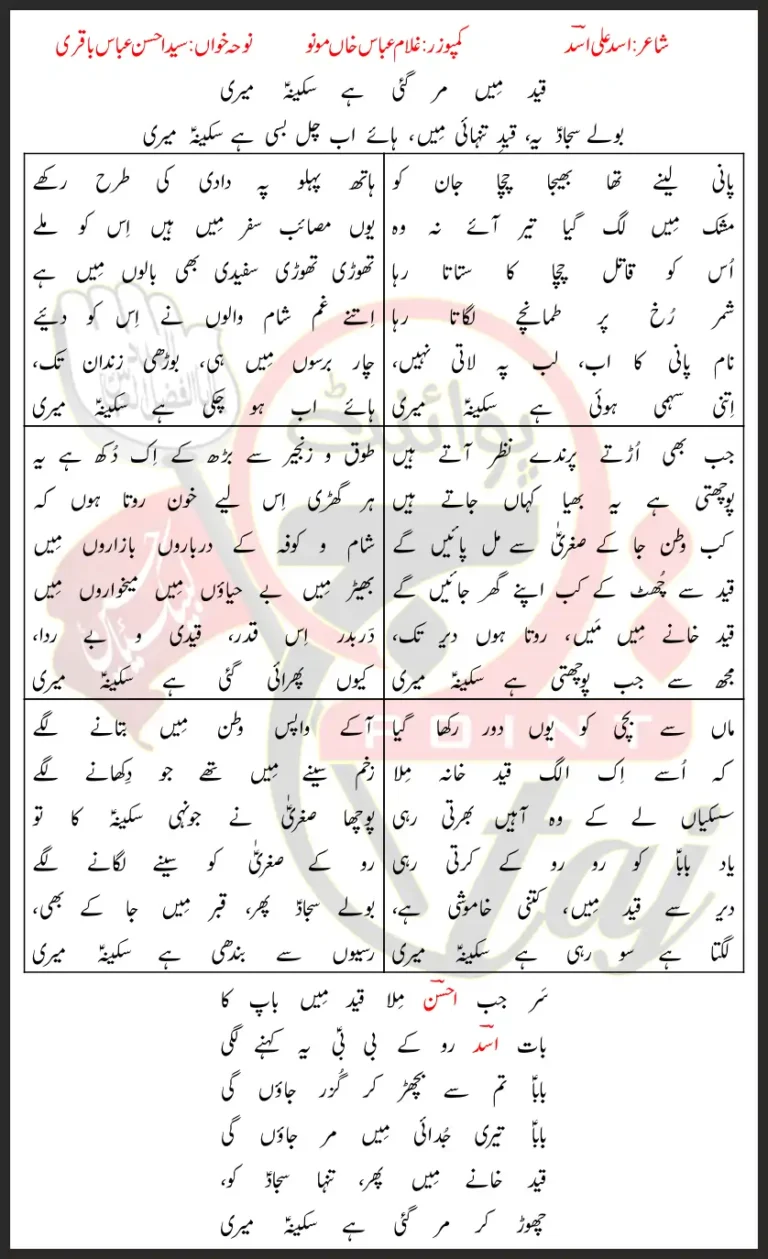 شاعر: اسد علی اسدؔ
کمپوزر: غلام عباس خاں مونو
نوحہ خواں: سید احسن عباس باقری
قید مِیں مر گئی ہے سکینہؑ میری
بولے سجادؑ یہ، قیدِ تنہائی مِیں، ہائے اب چل بسی ہے سکینہؑ میری
پانی لینے تھا بھیجا چچا جان کو
مشک مِیں لگ گیا تیر آئے نہ وہ
اُس کو قاتل چچا کا ستاتا رہا
شمر رُخ پر طمانچے لگاتا رہا
نام پانی کا اب، لب پہ لاتی نہیں،
اِتنی سہمی ہوئی ہے سکینہؑ میری
ہاتھ پہلو پہ دادی کی طرح رکھے
یوں مصائب سفر مِیں ہیں اِس کو ملے
تھوڑی تھوڑی سفیدی بھی بالوں مِیں ہے
اِتنے غم شام والوں نے اِس کو دیئے
چار برسوں مِیں ہی، بوڑھی زندان تک،
ہائے اب ہو چکی ہے سکینہؑ میری
جب بھی اُڑتے پرندے نظر آتے ہیں
پوچھتی ہے یہ بھیا کہاں جاتے ہیں
کب وطن جا کے صغریٰؑ سے مل پائیں گے
قید سے چُھٹ کے کب اپنے گھر جائیں گے
قید خانے مِیں مَیں، روتا ہوں دیر تک،
مجھ سے جب پوچھتی ہے سکینہؑ میری
طوق و زنجیر سے بڑھ کے اِک دُکھ ہے یہ
ہر گھڑی اِس لیے خون روتا ہوں کہ
شام و کوفہ کے درباروں بازاروں مِیں
بھیڑ مِیں بے حیاؤں مِیں میخواروں مِیں
دَربدر اِس قدر، قیدی و بے ردا،
کیوں پھرائی گئی ہے سکینہؑ میری
ماں سے بچی کو یوں دور رکھا گیا
کہ اُسے اِک الگ قید خانہ مِلا
سسکیاں لے کے وہ آہیں بھرتی رہی
یاد باباؑ کو رو رو کے کرتی رہی
دیر سے قید مِیں، کتنی خاموشی ہے،
لگتا ہے سو رہی ہے سکینہؑ میری
آکے واپس وطن مِیں بتانے لگے
زخم سینے مِیں تھے جو دِکھانے لگے
پوچھا صغریٰؑ نے جونہی سکینہؑ کا تو
رو کے صغریٰؑ کو سینے لگانے لگے
بولے سجادؑ پھر، قبر مِیں جا کے بھی،
رسیوں سے بندھی ہے سکینہؑ میری
سَر جب احسنؔ مِلا قید مِیں باپ کا
بات اسدؔ رو کے بی بیؑ یہ کہنے لگی
باباؑ تم سے بچھڑ کر گُزر جاؤں گی
باباؑ تیری جُدائی مِیں مر جاؤں گی
قید خانے مِیں پھر، تنہا سجادؑ کو،
چھوڑ کر مر گئی ہے سکینہؑ میری
پوائنٹ
POINT
taj